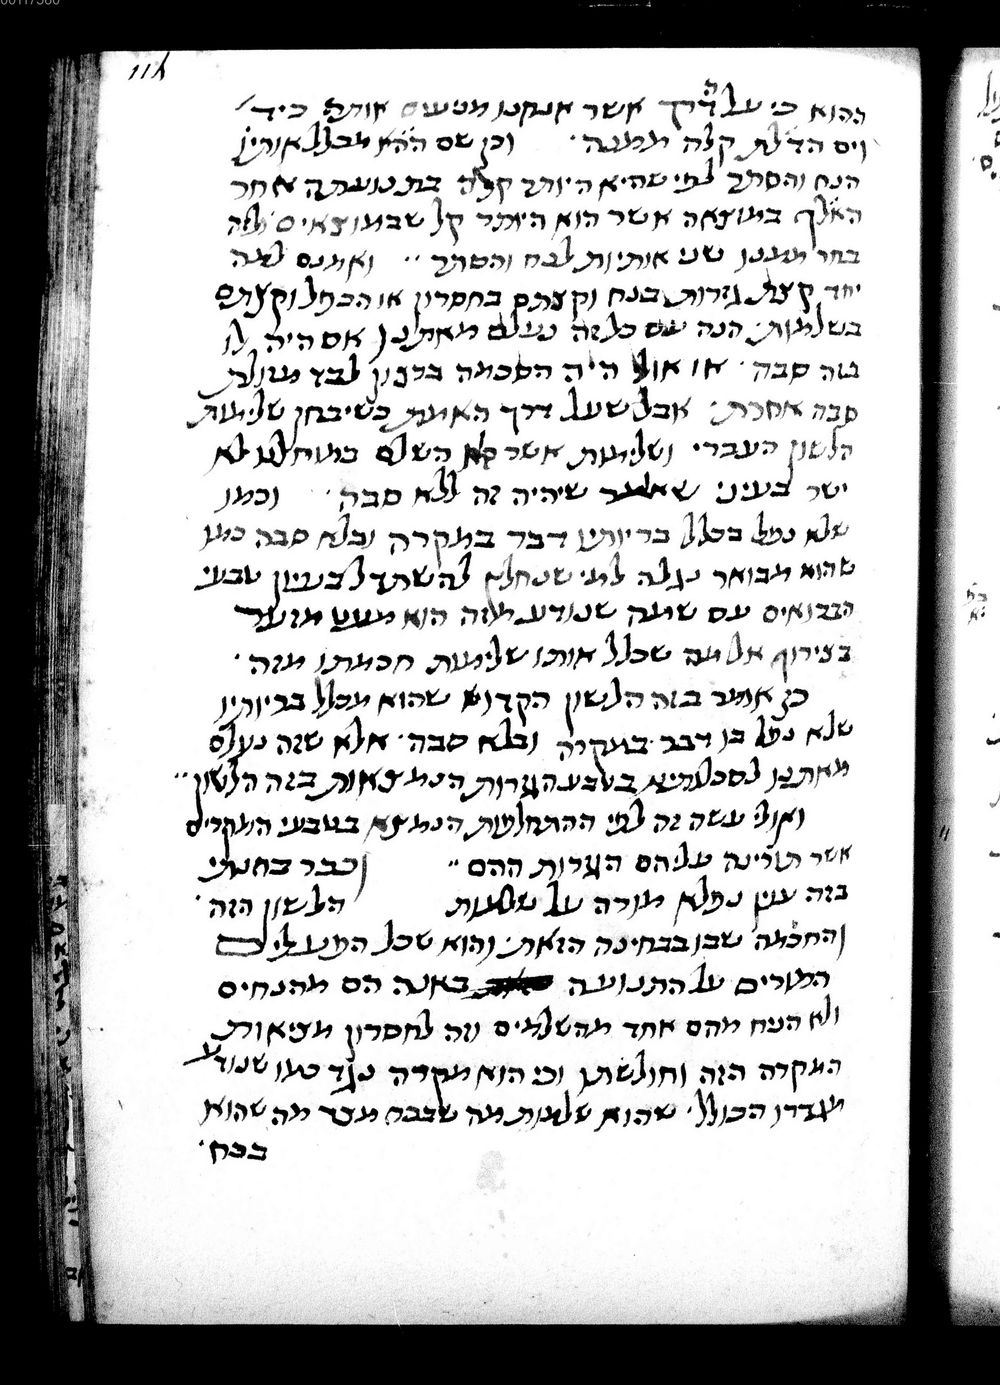 ההוא כי על הדרך אשר אנחנו מטעים אותה כיד׳
וים הד׳לת קלה ממנה׳ וכן שם הה׳א מכלל אותיו׳
הנח והסתר לפי שהיא היותר קלה בתנועתה אחר
הא׳לף במוצאה אשר הוא היותר קל שבמוצאים ולזה
בחר ממנו שני אותיות לנח והסתר ׳׳ ואמנם למה
יחד קצת גזרות בנח וקצתם בחסרון או הכפל וקצתם
בשלמות׳ הנה עם כל זה נעלם מאתנו אם היה לו
בזה סבה׳ או אולי היה הסכמה ברצון לבד מזולת
סבה אחרת׳ אבל שעל דרך האמת כשיבחן שלימות
הלשון העברי ושלימות אשר השלם במוחלט לא
ישר בעיני שאומר שיהיה זה ללא סבה׳ וכמו
שלא נפל בכלל בריותיו דבר במקרה ובלא סבה כמו
שהוא מבואר נגלה למי שנחלא להשתדל בענין טבעי
הנבראים עם שמה שנודע מזה הוא מעט מזער
בצירוף אל מה שכלל אותו שלימות חכמתו מזה׳
כן אומר בזה הלשון הקדוש שהוא מכלל בריותיו
שלא נפל בו דבר במקרה ובלא סבה׳ אלא שזה נעלם
מאתנו לסכלותינו בטבע הגזרות הנמצאות בזה הלשון׳׳
ואולי עשה זה לפי ההתחלפות הנמצא בטבעי המקרים
אשר תורינה עליהם הגזרות ההם ׳׳ וכבר בחנתי
בזה ענין נפלא מורה על שלמות הלשון הזה׳
והחכמה שבו בבחינה הזאת׳ והוא שכל הפעלים
המורים על התנועה באנה הם מהנחים
ולא הניח מהם אחד מהשלמים וזה לחסרון מציאות
המקרה הזה וחולשתו וכי הוא מקרה נגד כמו שנודע
מגדרו הכולל׳ שהוא שלמות מה שבכח מצד מה שהוא
בכח׳